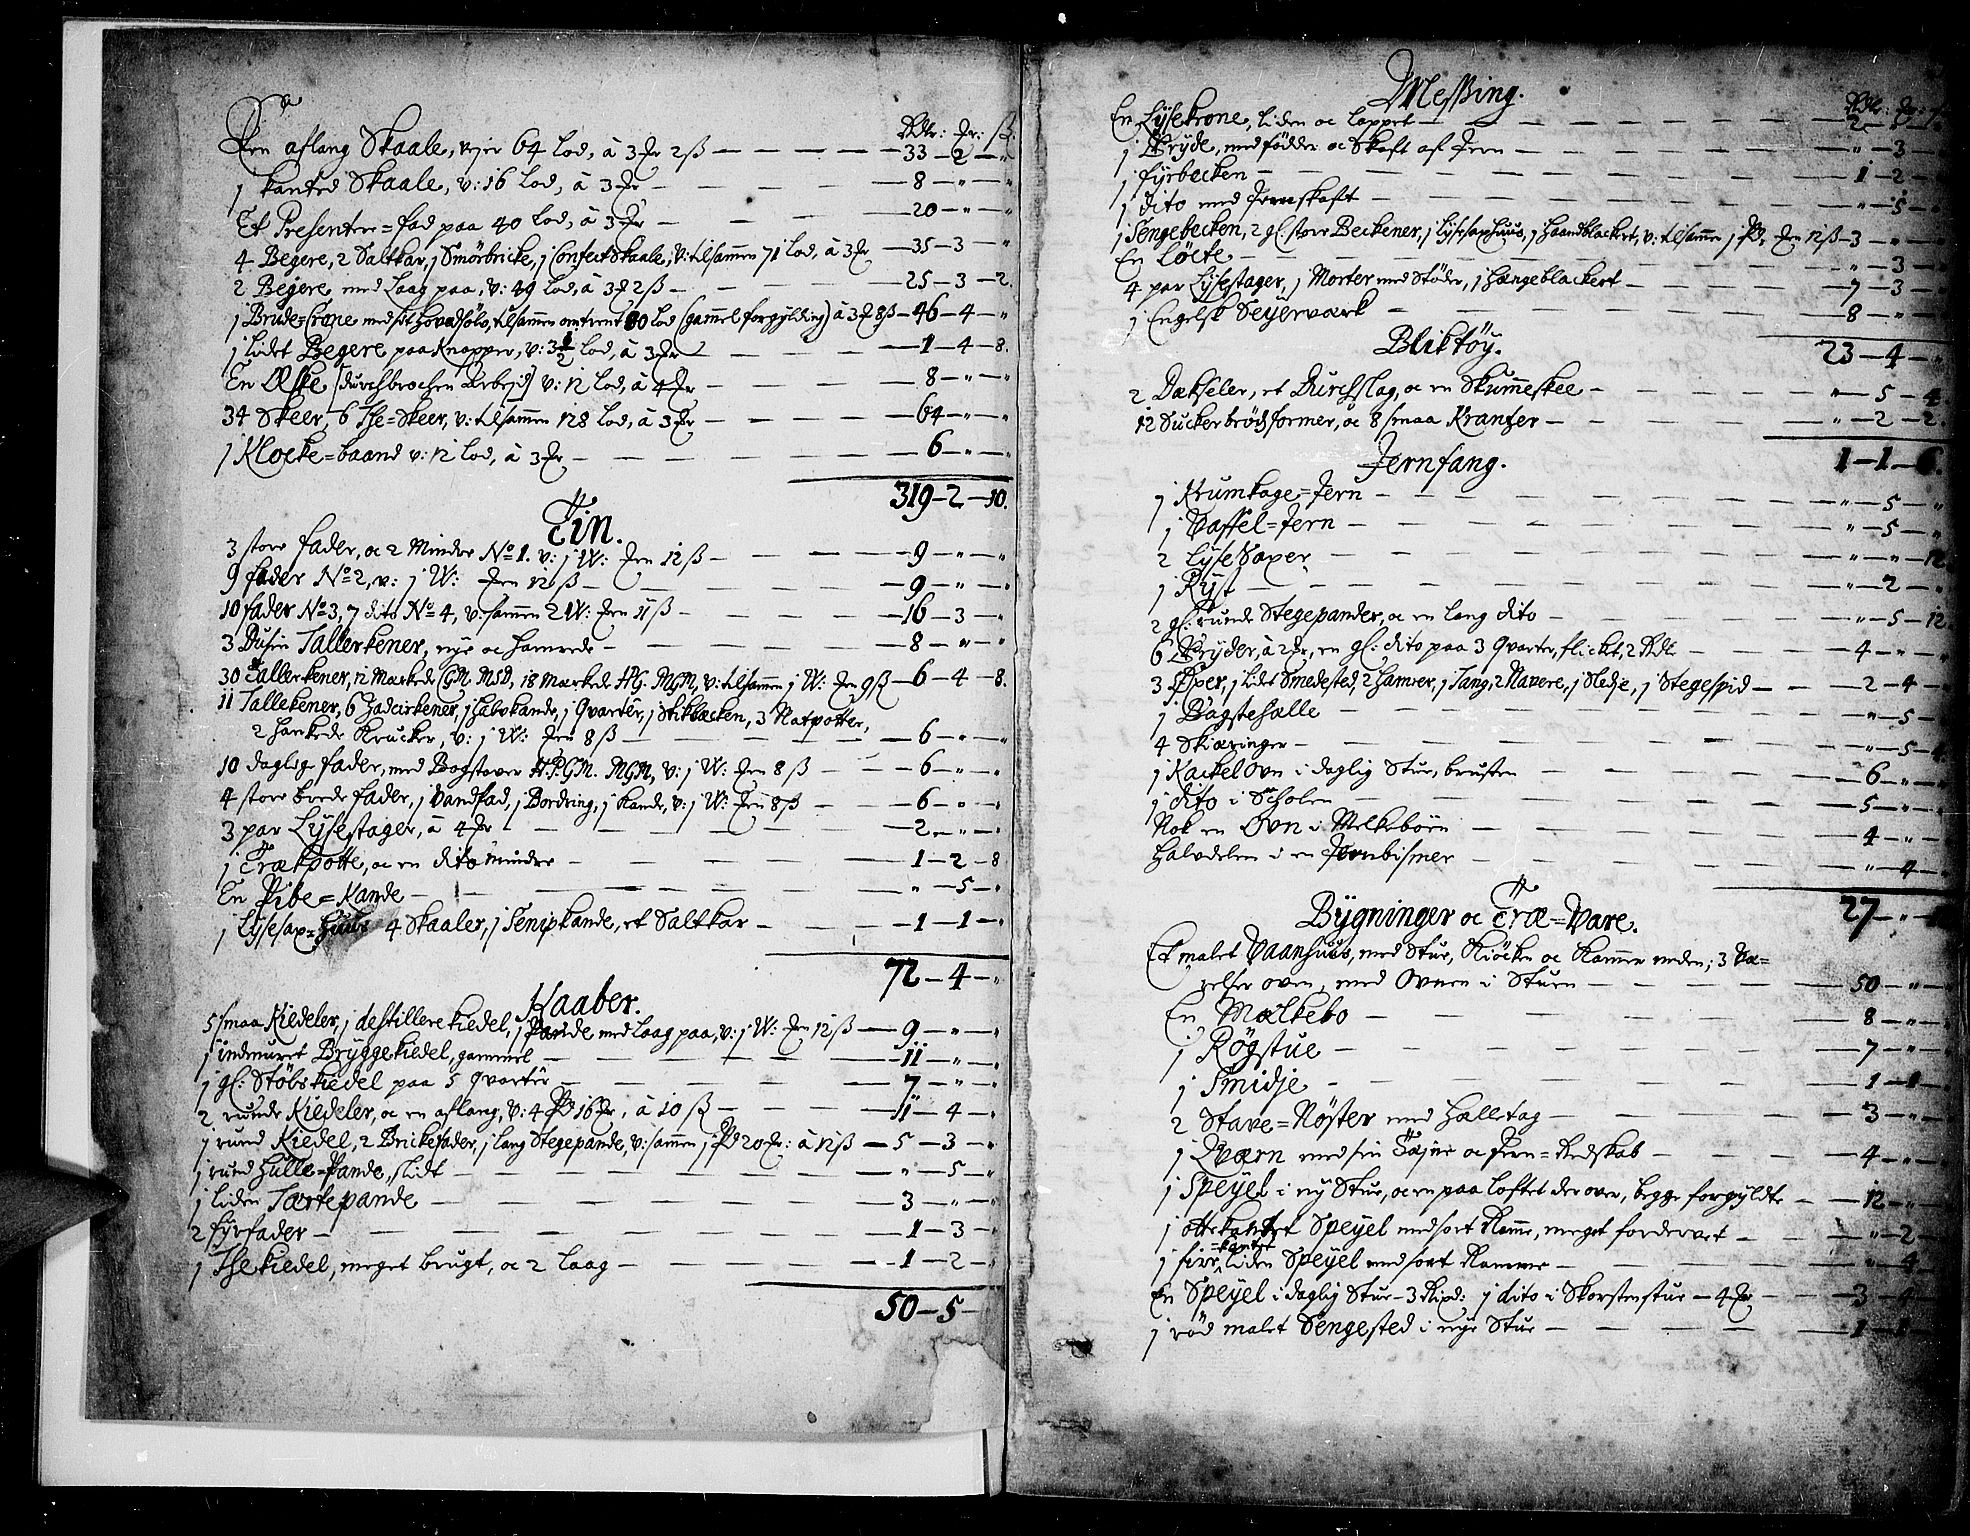 Rdlr: Ort: ß:
Een aflang Skaale, vejer 64 Lod, à 3 Ort 2 ß — 33 — 2 — "
1 kanted Skaale, v: 16 Lod, à 3 Ort — 8 — " — "
Et Presenteer=fad paa 40 Lod, à 3 Ort — 20 — " — "
4 Begere, 2 Saltkar, 1 Smörbricke, 1 Confect Skaale, v: tilsammen 71 Lod, à 3 Ort — 35 — 3 — "
2 Begere, med Laag paa, v: 49 Lod, à 3 Ort 2 ß — 25 — 3 — 2.
1 Brude=Crone med sit hovedsölv, tilsammen omtrent 80 Lod (gammel forgylding) à 3 Ort 8 ß — 46 — 4 — "
1 lidet Begere paa Knapper, v: 3 1/2 Lod, à 3 Ort — 1 — 4 — 8.
En Æske [durchbrochen Arbejd] v: 12 Lod, à 4 Ort — 8 — " — "
34 Skeer, 6 The=Skeer, v: tilsammen 128 Lod, à 3 Ort — 64 — " — "
1 Klocke=baand v: 12 Lod, à 3 Ort — 6 — " — "
319 — 2 — 10.
Tin.
3 store fader, oc 2 Mindre No 1. v: 1 W: Ort 12 ß — 9 — " — "
9 fader No 2, v: 1 W: Ort 12 ß — 9 — " — "
10 fader No 3, 7 dito No 4, v: sammen 2 W: Ort 11 ß — 16 — 3 — "
3 Dusin Tallerkener, nye oc hamrede — 8 — " — "
30 Tallerkener, 12 Merkede CGM. MSD, 18 Merkede HG. MGM, v: tilsammen 1 W: Ort 9 ß — 6 — 4 — 8.
11 Tallekener, 6 Jadeirkener, 1 halvkande, 1 Qvarter, 1 Stikbæcken, 3 Natpotter,
2 hankede Krucker, v: 1 W: Ort 8 ß — 6 — " — "
10 daglige fader, med Bogstaver H.P.GM. MGM, v: 1 W: Ort 8 ß — 6 — " — "
4 store brede fader, 1 Vandfad, 1 Bordring, 1 Kande, v: 1 W: Ort 8 ß — 6 — " — "
3 par Lysestager, à 4 Ort — 2 — " — "
1 Trækpotte, oc en dito mindre — 1 — 2 — 8
En Pibe=Kande — " — 5 — "
1 Lysesax=Huus 4 Skaaler, 1 Senipkande, et Saltkar — 1 — 1 — "
72 — 4 — "
Kaaber.
5 smaa Kiedeler, 1 destillere kiedel, 1 Pande med Laag paa, v: 1 W: Ort 12 ß — 9 — " — "
1 indmuret Bryggekiedel, gammel — 11 — " — "
1 gl: Stöbskiedel paa 5 qvartér — 7 — " — "
2 runde Kiedeler, oc en aflang, v: 4 — à 10 ß — 11 — 4 — "
1 rund Kiedel, 2 Brickefader, 1 lang Stegepande, v: sammen — à 12 ß — 5 — 3 — "
1 rund Hulle=Pande, slidt — " — 5 — "
1 liden Tærtepande — 3 — " — "
2 fyrfader — 1 — 3 — "
1 The kiedel, meget brugt, oc 2 Laag — 1 — 2 —
50 — 5 —
Messing.
Rdlr: Ort: ß
En Lysekrone, liden oc lappet — 2 — " — "
1 Gryde, med födder oc Skaft af Jern — " — 3 —
1 fyrbecken — 1 — 2 —
1 dito med Jernskaft — " — 5 —
1 Sengebecken, 2 gl: store Beckener, 1 lysesaxhuus, 1 haandblackert, v: tilsammen — 12 ß — 3 — " —
En Löcte — " — 3 —
4 par Lysestager, 1 Morter med Stöder, 1 hængeblackert — 7 — 3 —
1 Engelsk Seyerværk — 8 — " —
23 — 4 — "
Bliktöy.
2 Dækseler, et Durchslag, oc en Skummeskee — " — 5 — 4
12 Suckerbröds former, oc 8 smaa Krantzer — " — 2 — 2.
1 — 1 — 6.
Jernfang.
1 Krumkage=Jern — " — 5 — "
1 Vaffel=Jern — " — 5 — "
2 Lyse Saxer — " — " — 12.
1 Ryst — " — 2 — "
2 gl: runde Stegepander, oc en lang dito — " — 5 — 12.
6 Gryder, à 2 Ort, en gl: dito paa 3 Qvarter, flickt, 2 Rdl — 4 — " — "
3 Öxer, 1 lidet Smedested, 2 hamrer, 1 Tang, 2 Navere, 1 Sledje, 1 Stegespid — 2 — 4 —
1 Bagstehælle — " — 5 —
4 Skiæringer — " — 5 — 4
1 Kackelovn i daglig Stue, brusten — 6 — " —
1 dito i Scholen — 5 — " —
Nok en Ovn i Melkeböen — 4 — " —
Halvdelen i en Jernbismer — " — 4 —
27 — " —
Bygninger oc Træ=Vare.
Et malet Vaanhuus, med Stue, Kiöcken oc Kammer neden; 3 Væ=
relser oven, med Ovnen i Stuen — 50 — " —
En Mælkebo — 8 — " —
1 Røgstue — 7 — " —
1 Smidje — 1 — 1 —
2 Stave=Nöster med Halltag — 3 — " —
1 Qværn med sin Tøjne oc Jern=Redskab — 4 — " —
1 Speyel i ny Stue, oc en paa Loftet derover, begge forgyldte — 12 — " —
1 ottekantet Speyel med sort Ramme, meget fordervet — " — 2 —
=kantet
1 fire, liden Speyel med sort Ramme — " — 4 —
En Speyel i daglig Stue — 3 Rixd: 1 dito i Skorstenstue — 4 Ort — 3 — 4
1 röd malet Sengested i nye Stue — 1 — 1 —